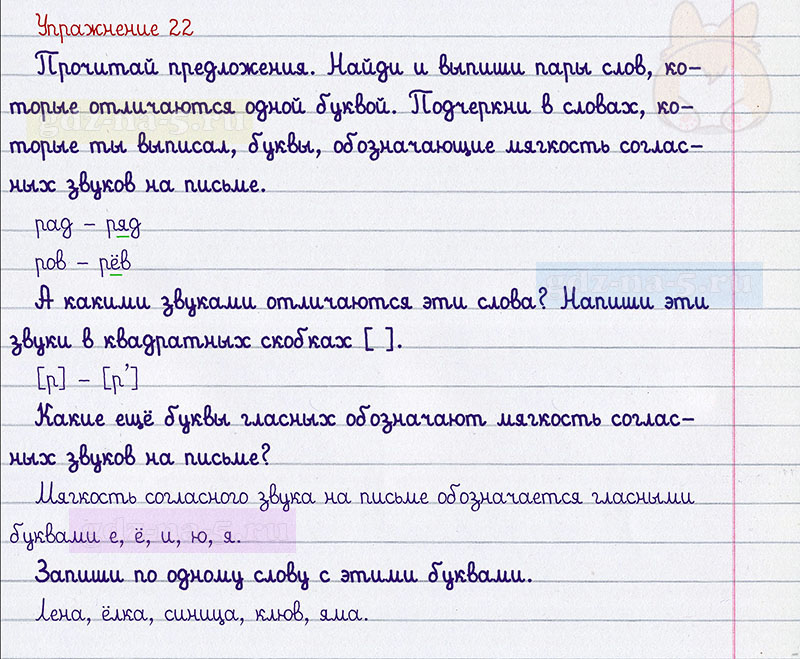 Упражнение 22
Прочитай предложения. Найди и выпиши пары слов, ко-
торые отличаются одной буквой. Подчеркни в словах, ко-
торые ты выписал, буквы, обозначающие мягкость соглас-
ных звуков на письме.
рад – ряд
ров – рёв
А какими звуками отличаются эти слова? Напиши эти
звуки в квадратных скобках [ ].
[р] – [р']
Какие ещё буквы гласных обозначают мягкость соглас-
ных звуков на письме?
Мягкость согласного звука на письме обозначается гласными
буквами е, ё, и, ю, я.
Запиши по одному слову с этими буквами.
Лена, ёлка, синица, клюв, яма.
gdz-na-5.ru
gdz-na-5.ru
gdz-na-5.ru